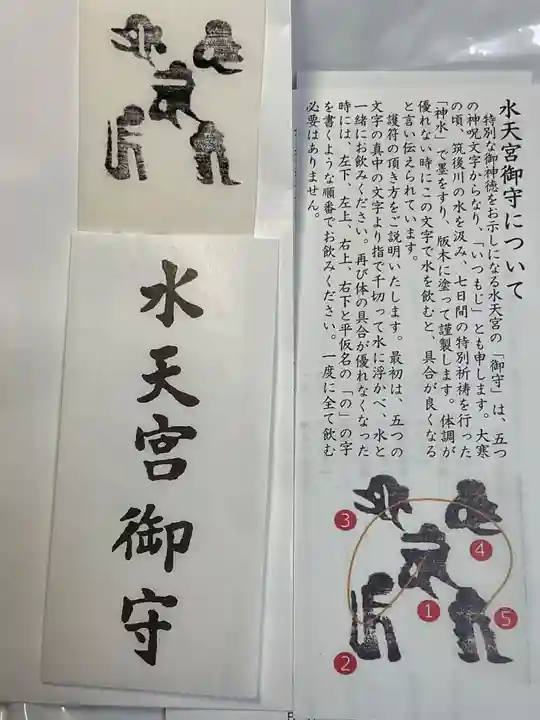 水天宮御守について
特別な御神徳をお示しになる水天宮の「御守」は、五つ
の神呪文字からなり、「いつもじ」とも申します。大寒
の頃、筑後川の水を汲み、七日間の特別祈祷を行った
「神水」で墨をすり、版木に塗って謹製します。体調が
優れない時にこの文字で水を飲むと、具合が良くなる
と言い伝えられています。
護符の頂き方をご説明いたします。最初は、五つの
文字の真中の文字より指で千切って水に浮かべ、水と
一緒にお飲みください。再び体の具合が優れなくなった
時には、左下、左上、右上、右下と平仮名の「の」の字
を書くような順番でお飲みください。一度に全て飲む
必要はありません。
3
4
1
2
5
水天宮御守